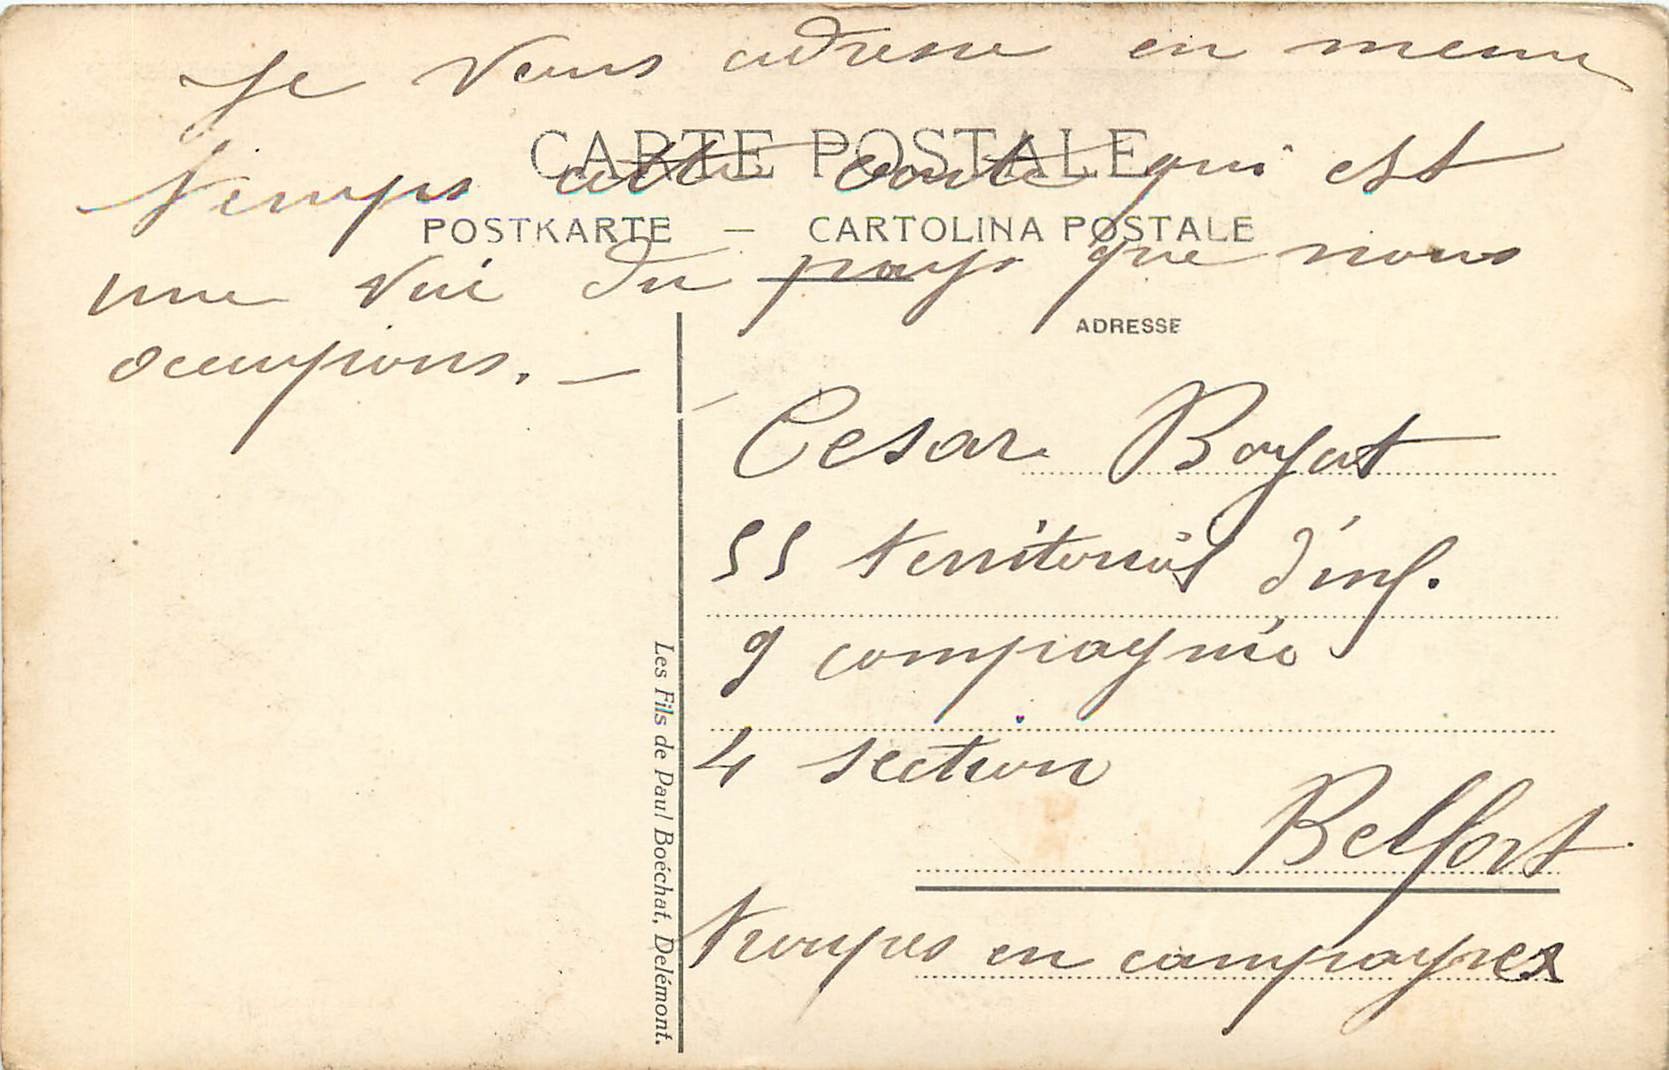 Je vous adresse en meme
temps cette carte qui est
une vue du pays que nous
occupions. —
CARTE POSTALE
POSTKARTE — CARTOLINA POSTALE
ADRESSE
Cesar Boyat
55 territorial d'inf.
9 compagnie
4 section
Belfort
troupes en campagnes
Les Fils de Paul Boéchat, Delémont.